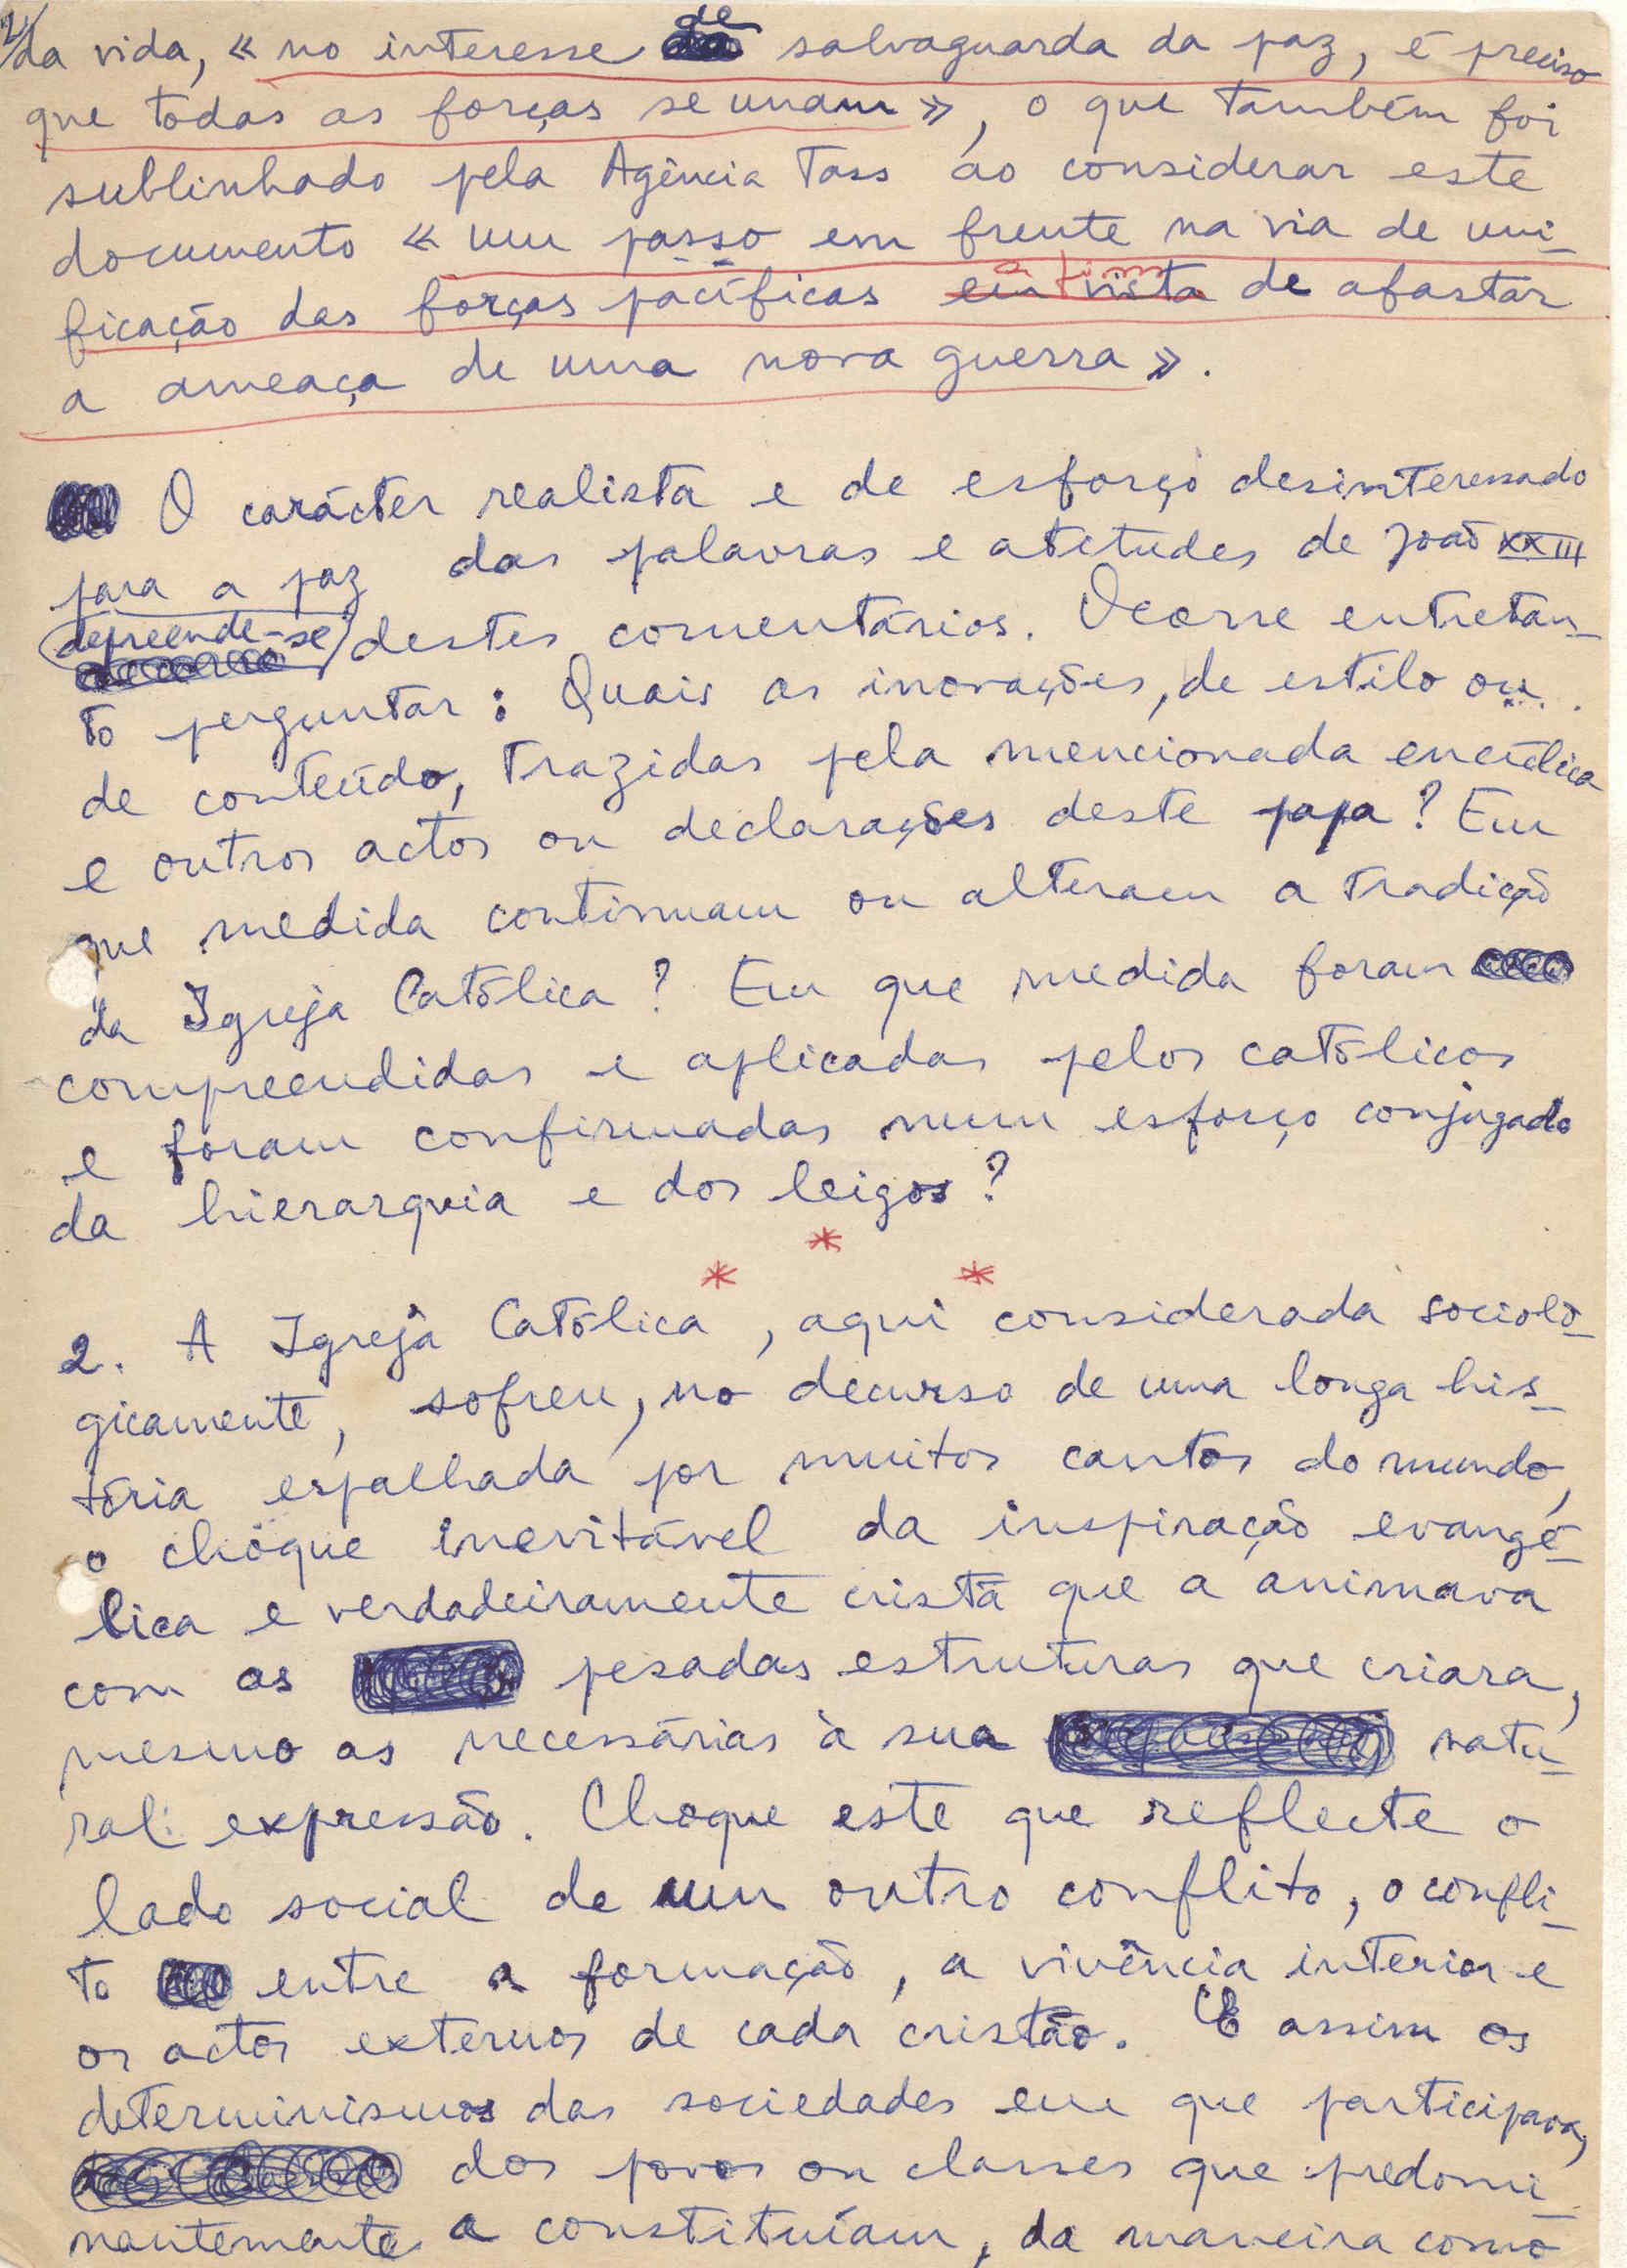 2/
da vida, « no interesse de salvaguarda da paz, é preciso
que todas as forças se unam », o que também foi
sublinhado pela Agência Tass ao considerar este
documento « um passo em frente na via de uni-
ficação das forças pacíficas em vista a fim de afastar
a ameaça de uma nova guerra ».
O carácter realista e de esforço desinteressado
para a paz das palavras e atitudes de João XXIII
depreende-se destes comentários. Ocorre entretan-
to perguntar: Quais as inovações, de estilo ou
de conteúdo, trazidas pela mencionada encíclica
e outros actos ou declarações deste papa? Em
que medida continuam ou alteram a tradição
da Igreja Católica? Em que medida foram
compreendidas e aplicadas pelos católicos
e foram confirmadas num esforço conjugado
da hierarquia e dos leigos?
*
* *
2. A Igreja Católica, aqui considerada sociolò-
gicamente, sofreu, no decurso de uma longa his-
tória espalhada por muitos cantos do mundo,
o choque inevitável da inspiração evangé-
lica e verdadeiramente cristã que a animava
com as pesadas estruturas que criara,
mesmo as necessárias à sua natu-
ral expressão. Choque este que reflecte o
lado social de um outro conflito, o confli-
to entre a formação, a vivência interior e
os actos externos de cada cristão. E assim os
determinismos das sociedades em que participava,
dos povos ou classes que predomi-
nantemente a constituíam, da maneira como